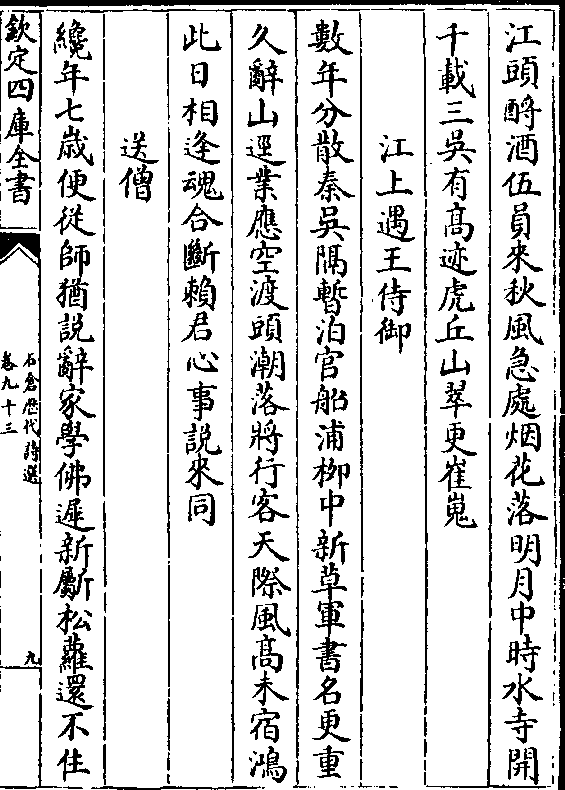 江頭酹酒伍員來秋風急處烟花落明月中時水寺開
千載三吳有髙迹虎丘山翠更崔嵬
江上遇王侍御
數年分散秦吳隔暫泊官船浦柳中新草軍書名更重
久辭山逕業應空渡頭潮落將行客天際風髙未宿鴻
此日相逢魂合斷賴君心事說來同
送僧
纔年七歲便從師猶說辭家學佛遲新斸松蘿還不住
欽定四庫全書
石倉歷代詩選
卷九十三
九